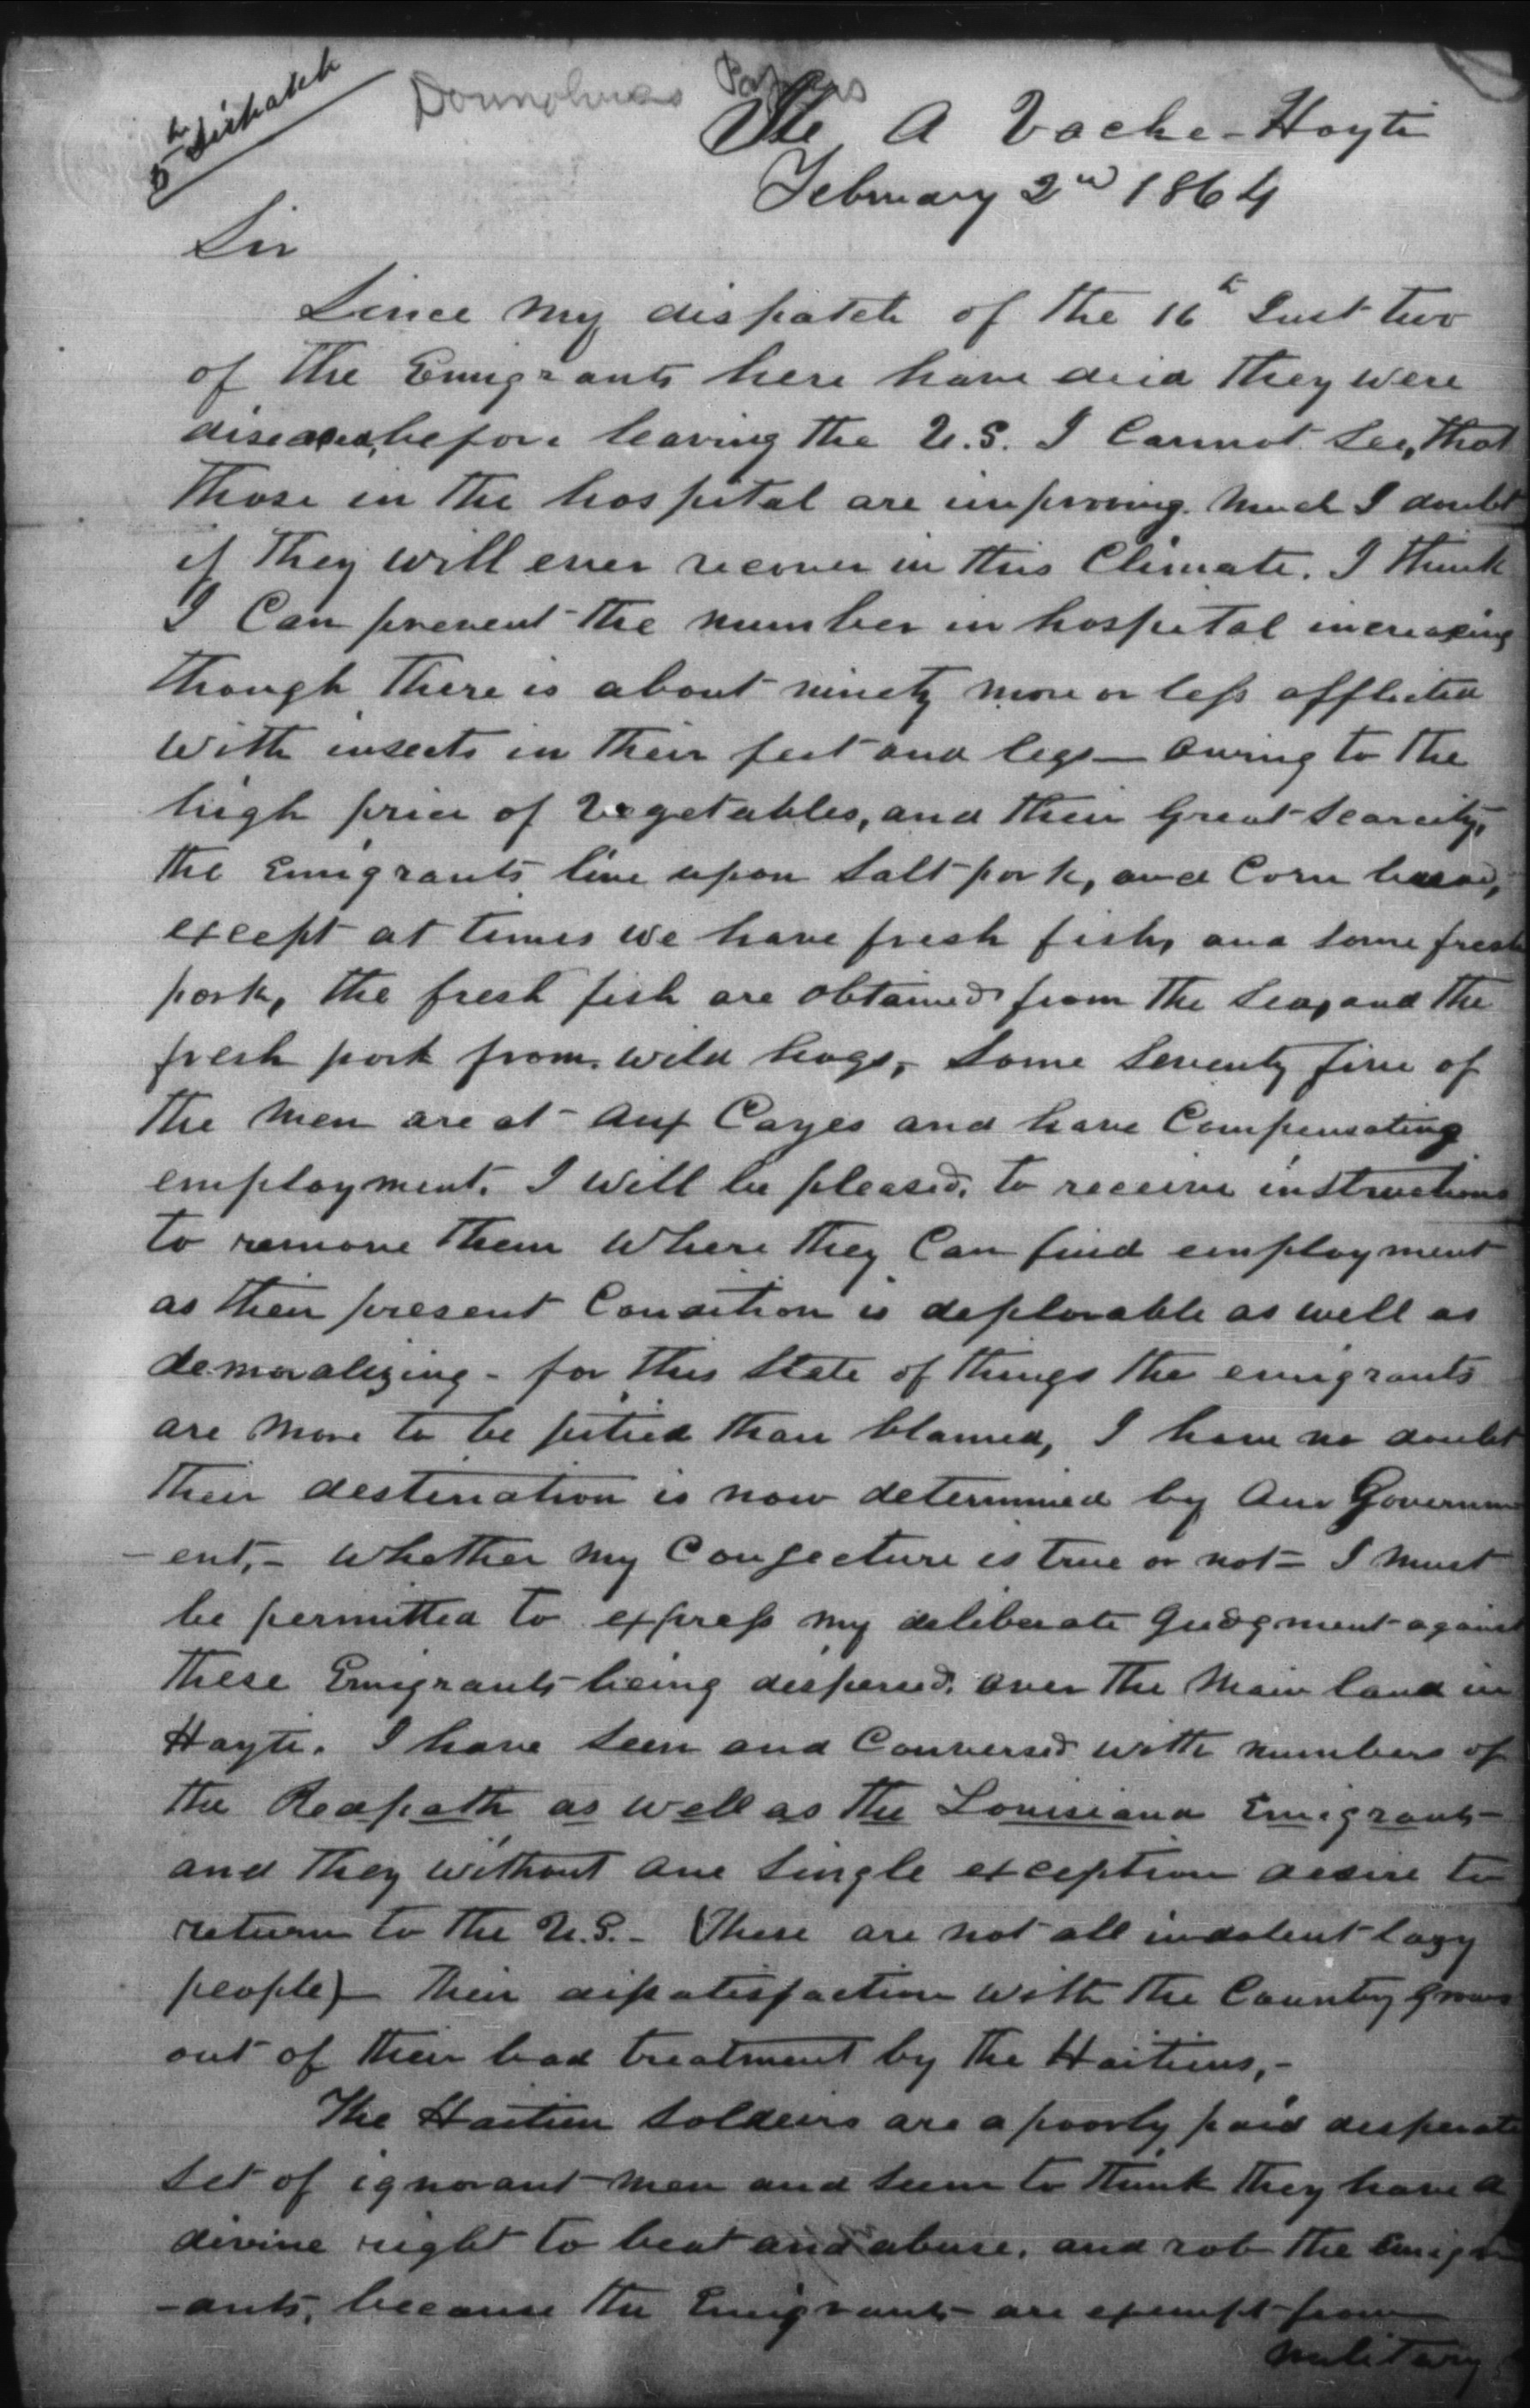 5th Dispatch
Donnohues Papers
Ile A Vache - Hayti
February 2nd 1864
Sir
Since my dispatch of the 16th Inst two
of the Emigrants here have died they were
diseased, before leaving the U.S. I Cannot See, that
those in the hospital are improving much I doubt
if they will ever recover in this Climate. I think
I Can prevent the number in hospital increasing
though there is about ninety more or less afflicted
with insects in their feet and legs — Owing to the
high price of Vegetables, and their Great Scarcity,
the Emigrants live upon Salt pork, and Corn bread,
except at times we have fresh fish, and some fresh
pork, the fresh fish are obtained from the Sea, and the
fresh pork from wild hogs, Some Seventy five of
the men are at Aux Cayes and have Compensating
employment. I will be pleased, to receive instructions
to remove them where they Can find employment
as their present Condition is deplorable as well as
demoralizing - for this State of things the emigrants
are more to be pitied than blamed, I have no doubt
their destination is now determined by Our Governm
- ent, - Whether my Conjecture is true or not - I must
be permitted to express my deliberate Judgment against
these Emigrants being dispersed, over the Main land in
Hayti. I have seen and Conversed with numbers of
the Redpath as well as the Louisiana Emigrants -
and they without one Single exception desire to
return to the U.S. - (These are not all indolent lazy
people) - Their dissatisfaction with the Country Grows
out of their bad treatment by the Haitiens, -
The Haitien Soldeirs are a poorly paid desperate
Set of ignorant men and seem to think they have a
divine right to beat and abuse, and rob the Emigr
- ants, because the Emigrants are exempt from
military